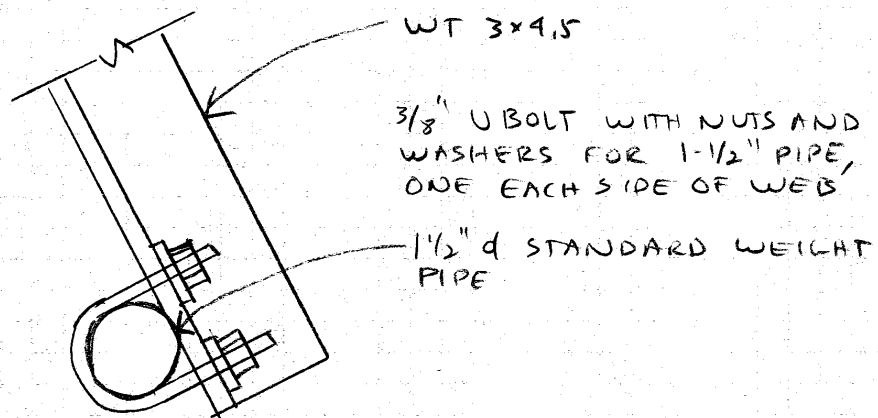 WT 3x4.5
3/8" U BOLT WITH NUTS AND
WASHERS FOR 1-1/2" PIPE,
ONE EACH SIDE OF WEB
1 1/2" d STANDARD WEIGHT
PIPE